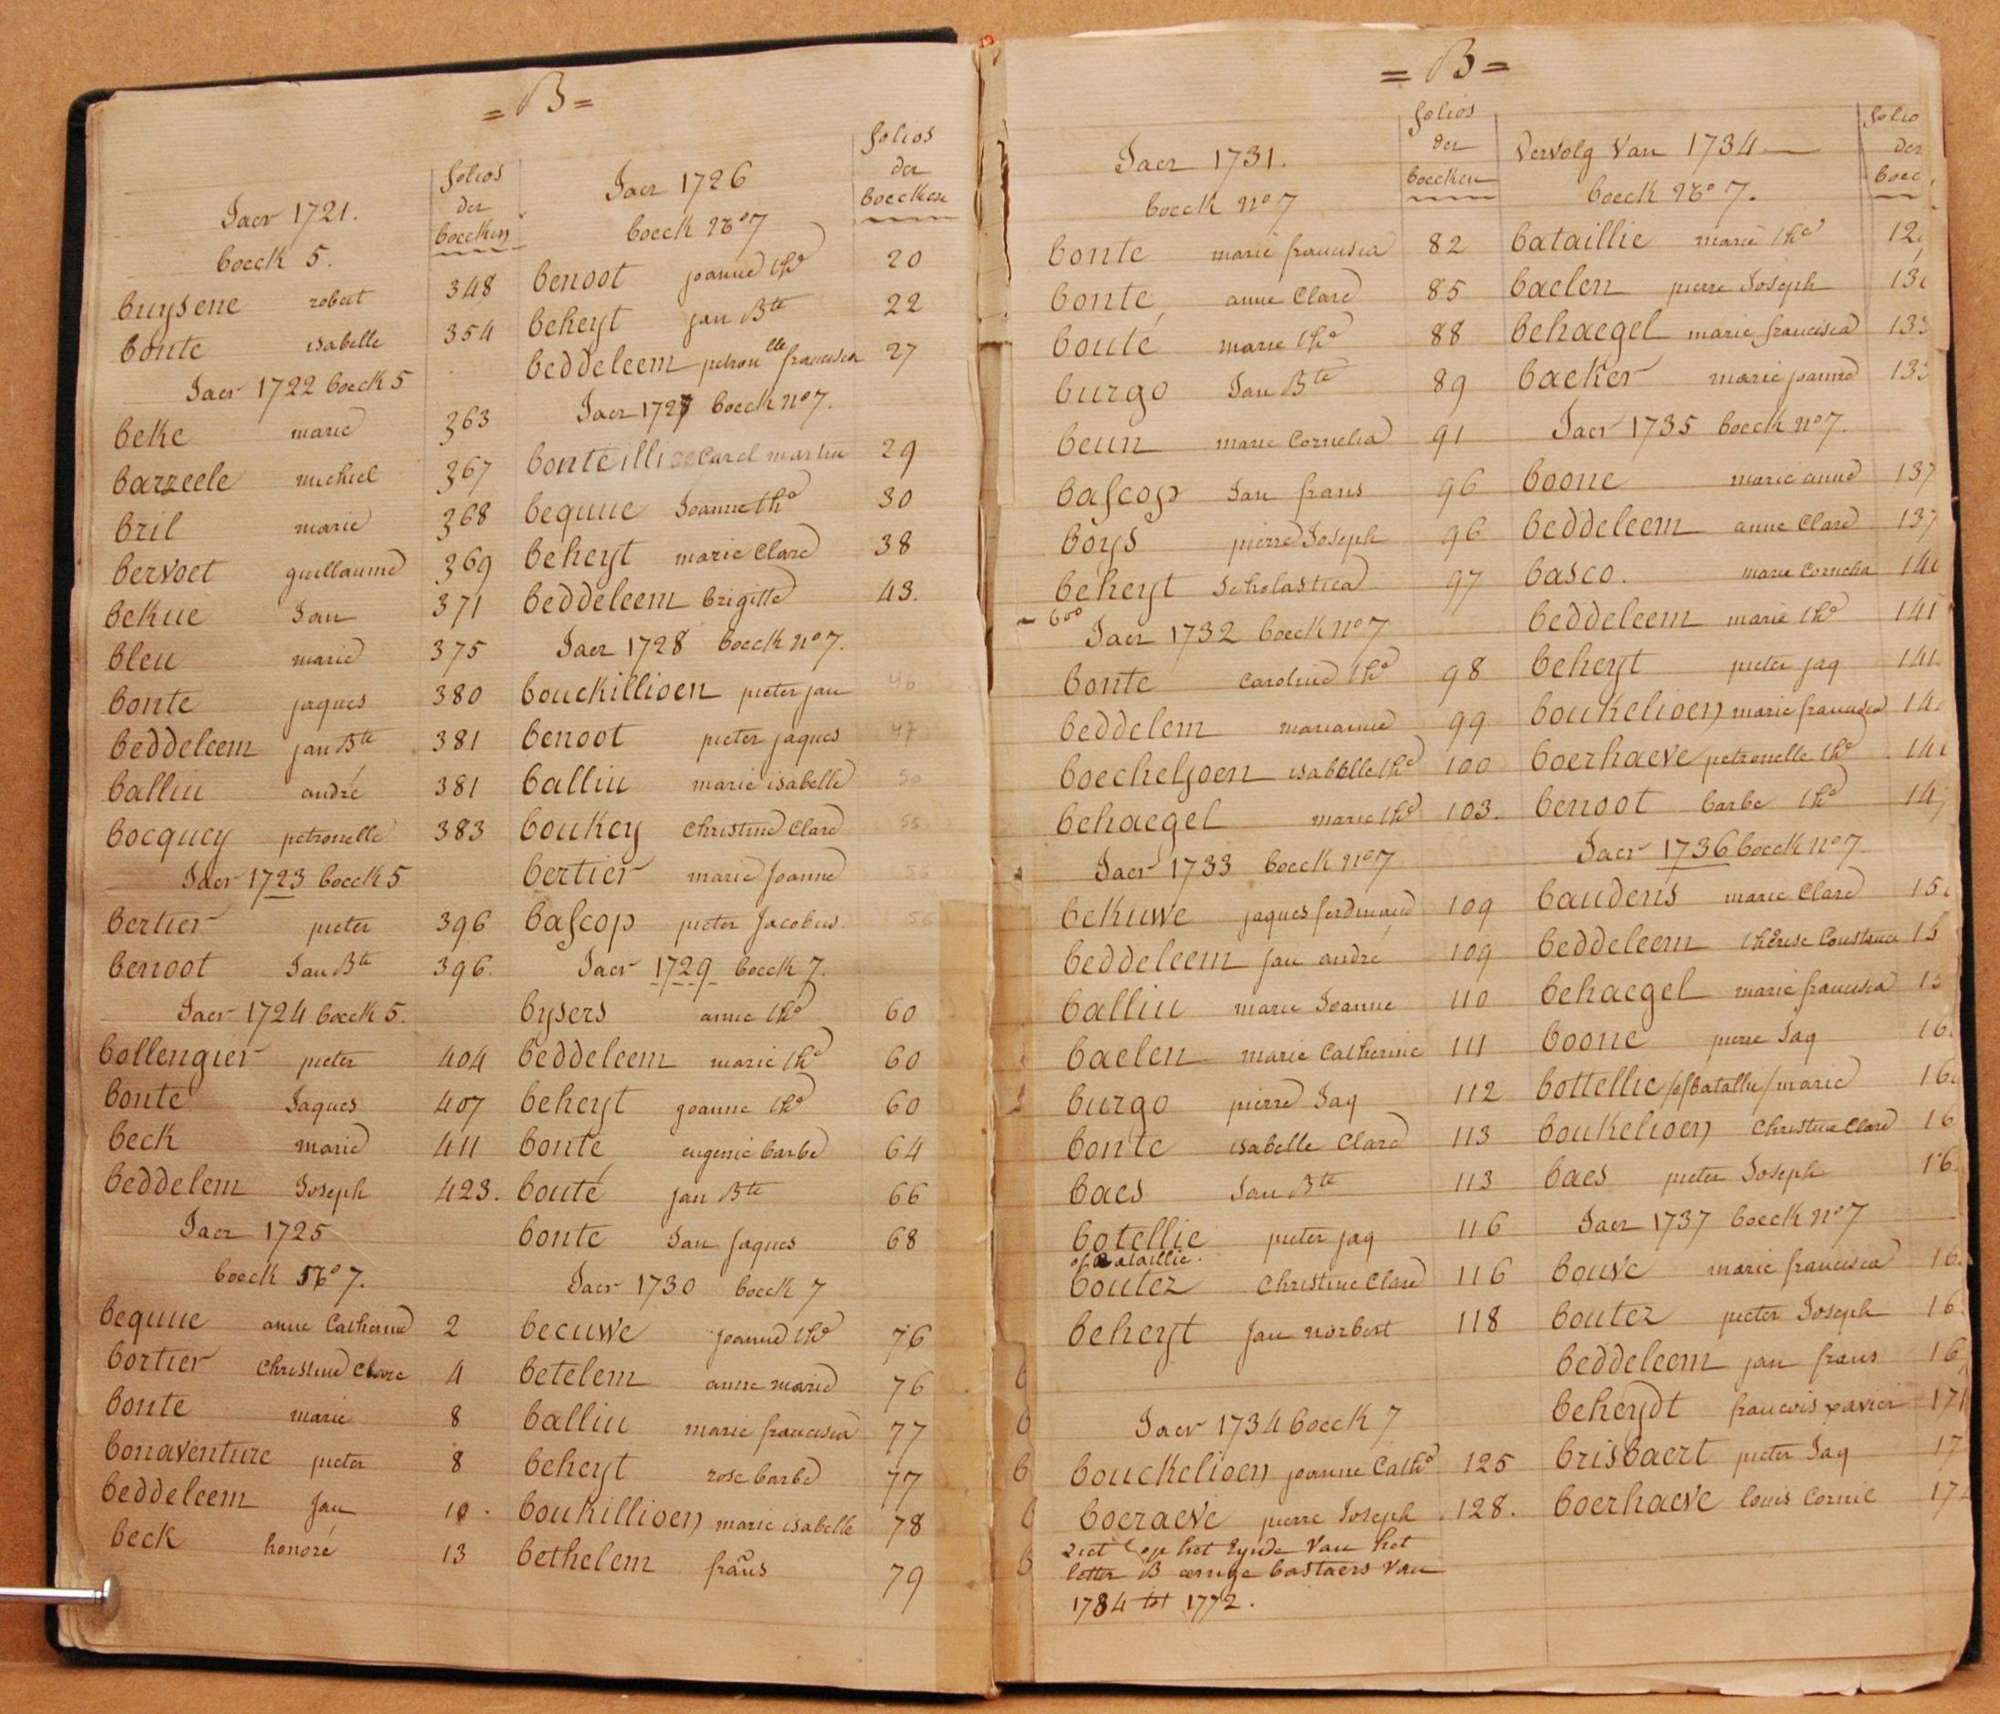 = B =
Jaer 1721.
boeck 5.
folios
der
boecken
buysene robert 348
bonte isabelle 354
Jaer 1722 boeck 5
beke marie 363
barzeele michiel 367
bril marie 368
bervoet guillaume 369
bekue Jan 371
bleu marie 375
bonte jaques 380
beddeleem jan Bte 381
balliu andré 381
bocquey petronelle 383
Jaer 1723 boeck 5
bertier pieter 396
benoot Jan Bte 396.
Jaer 1724 boeck 5.
bollengier pieter 404
bonte Jaques 407
beck marie 411
beddelem Joseph 423.
Jaer 1725
boeck No 7.
bequue anne Catherine 2
bortier Christine Clare 4
bonte marie 8
bonaventure pieter 8
beddeleem Jan 10
beck honoré 13
Jaer 1726
boeck No 7
folios
der
boecken
benoot joanne the 20
beheyt jan Bte 22
beddeleem petronelle francisca 27
Jaer 1727 boeck no 7.
bonteillie Carel martin 29
bequue Joanne the 30
beheyt marie Clare 38
beddeleem brigitte 43.
Jaer 1728 boeck no 7.
bouckillioen pieter jan 46
benoot pieter jaques 47
balliu marie isabelle 50
boukey Christine Clare 55
bertier marie Joanne 56
bascop pieter Jacobus 56
Jaer 1729 boeck 7.
bysers anne the 60
beddeleem marie the 60
beheyt joanne the 60
bonte eugenie barbe 64
bonté jan Bte 66
bonte Jan Jaques 68
Jaer 1730 boeck 7
becuwe joanne the 76
betelem anne marie 76
balliu marie francisca 77
beheyt rose barbe 77
boukillioen marie isabelle 78
bethelem frans 79
= B =
Jaer 1731.
boeck no 7
folios
der
boecken
bonte marie francisca 82
bonte anne Clare 85
bouté marie the 88
burgo Jan Bte 89
beun marie Cornelia 91
bascop Jan frans 96
boys pierre Joseph 96
beheyt Scholastica 97
Jaer 1732 boeck no 7
bonte Caroline the 98
beddelem marianne 99
boecheljoen isabelle the 100
behaegel marie the 103.
Jaer 1733 boeck no 7
bekuwe jaques ferdinand 109
beddeleem jan andré 109
balliu marie Joanne 110
baelen marie Catherine 111
burgo pierre Jaq 112
bonte isabelle Clare 113
baes Jan Bte 113
botellie pieter jaq 116
of Bataillie.
boutez Christine Clare 116
beheyt Jan norbert 118
Jaer 1734 boeck 7
bouckelioen joanne Cathe 125
boeraeve pierre Joseph 128.
ziet op het Eynde Van het
letter B eenige bastaers Van
1734 tot 1772.
Vervolg Van 1734
boeck No 7.
folio
der
boec
bataillie marie the 12
baelen pierre Joseph 13
behaegel marie francisca 133
backer marie joanne 133
Jaer 1735 boeck no 7.
boone marie anne 137
beddeleem anne Clare 137
basco. marie Cornelia 140
beddeleem marie the 141
beheyt pieter jaq 141
boukelioen marie francisca 14
boerhaeve petronelle the 14
benoot barbe the 14
Jaer 1736 boeck no 7
baudens marie Clare 15
beddeleem thérèse Constance 15
behaegel marie francisca 15
boone pierre Jaq 16
bottellie /of batallie/ marie 16
boukelioen Christine Clare 16
baes pieter Joseph 16
Jaer 1737 boeck no 7
bouve marie francisca 16
boutez pieter Joseph 16
beddeleem jan frans 16
beheydt francois xavier 171
brisbaert pieter Jaq 17
boerhaeve louis Cornil 17